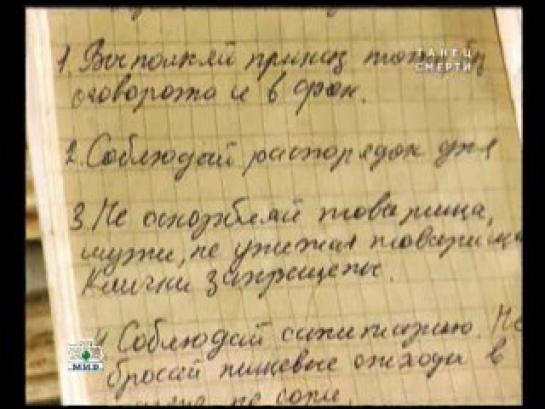 ТАНЕЦ
СМЕРТИ
1. Выполняй приказ точно, без
оговорок и в срок.
2. Соблюдай распорядок дня
3. Не оскорбляй товарища,
не унижай товарища
Клички запрещены.
4. Соблюдай санитарию. Не
бросай пищевые отходы в
не сори.
МИР